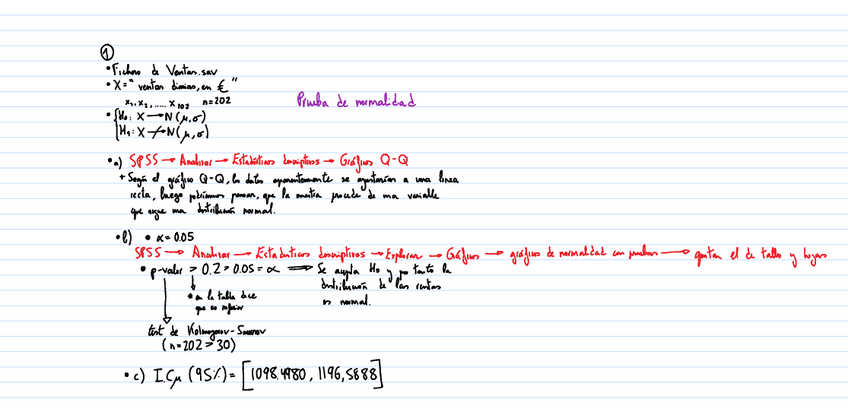 ①
• Fichero de Ventas.sav
• X = "ventas diarias, en €"
x₁, x₂, ..... x₂₀₂ n=202
Prueba de normalidad
• { H₀: X → N(μ,σ)
H₁: X ↛ N(μ,σ)
• a) SPSS → Analizar → Estadísticos descriptivos → Gráficos Q-Q
+ Según el gráfico Q-Q, los datos aparentemente se ajustarían a una línea
recta, luego podríamos pensar, que la muestra procede de una variable
que sigue una distribución normal.
• b) • α = 0.05
SPSS → Analizar → Estadísticos descriptivos → Explorar → Gráficos → gráficos de normalidad con pruebas → quitar el de tallo y hojas
• p-valor > 0.2 > 0.05 = α ⟹ Se acepta H₀ y por tanto la
distribución de las ventas
es normal.
• en la tabla dice
que es inferior
test de Kolmogorov-Smirnov
(n=202 > 30)
• c) I.Cμ (95%) = [1098.4980, 1196,5888]